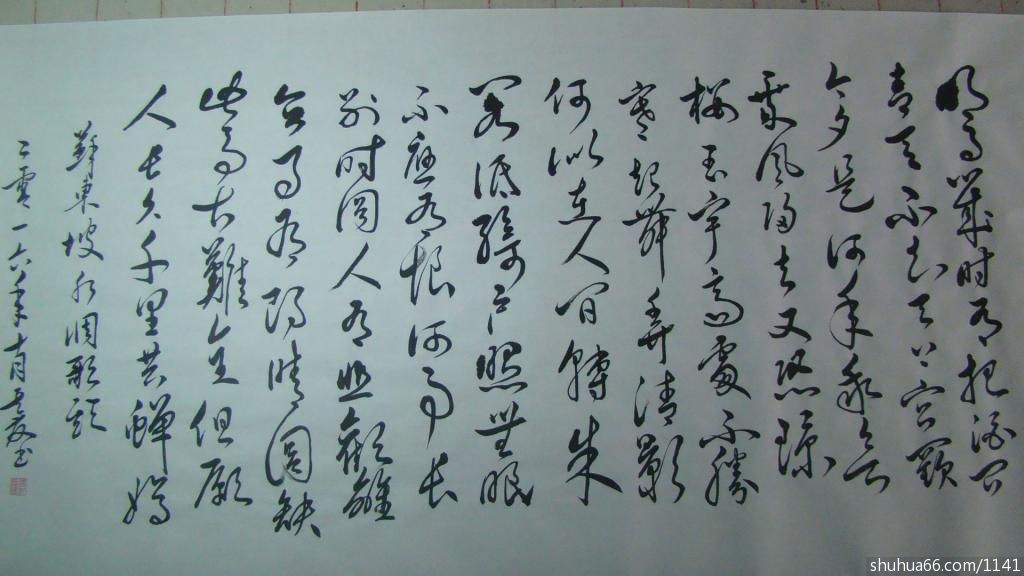 明月幾时有把酒问
青天不知天上宫闕
今夕是何年我欲
乘风归去又恐琼
楼玉宇高處不勝
寒起舞弄清影
何似在人间轉朱
阁低绮户照無眠
不應有恨何事长
别时圆人有悲歡離
合月有阴晴圆缺
此事古難全但願
人长久千里共蟬娟
蘇東坡水调歌頭
二零一六年十月书
shuhua66.com/1141